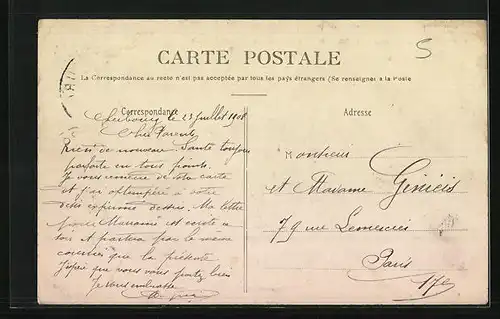 CARTE POSTALE
5
La Correspondance au recto n'est pas acceptée par tous les pays étrangers (Se renseigner à la Poste
Correspondance
Adresse
Cherbourg le 23 Juillet 1908
Chers Parents
Rien de nouveau. Santé toujours
parfaite en tous points.
Je vous remercie de votre carte
et j'ai obtempéré à votre
désir exprimé dessus. Ma lettre
pour est écrite
et partira par le même
courrier que la présente
J'espère que vous vous portez bien
Je vous embrasse
Monsieur
et Madame
79 rue
Paris
17e